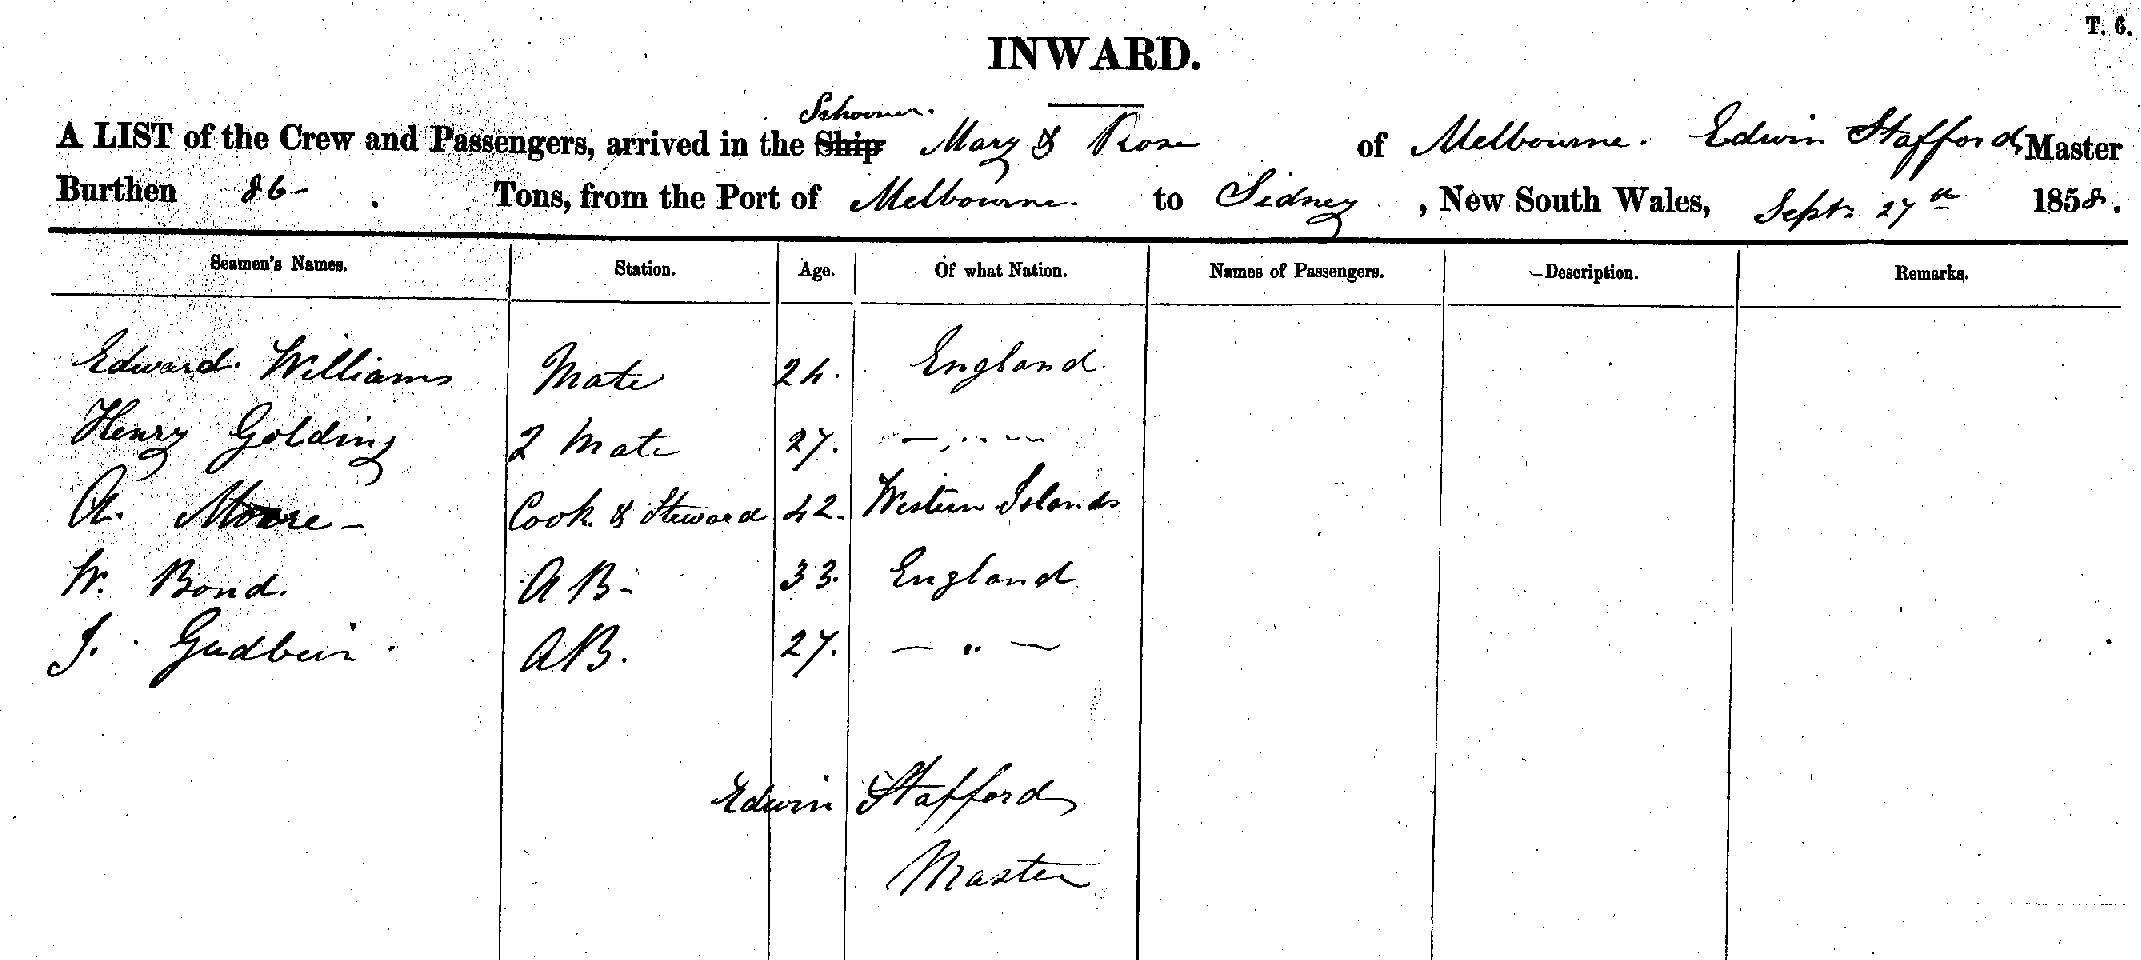 T. 6.
INWARD.
Schooner
A LIST of the Crew and Passengers, arrived in the Ship Mary & Rose of Melbourne. Edwin Stafford Master
Burthen 86 - . Tons, from the Port of Melbourne. to Sidney , New South Wales, Septr 27th 1858.
Seamen's Names. Station. Age. Of what Nation. Names of Passengers. Description. Remarks.
Edward Williams Mate 24. England
Henry Golding 2 Mate 27. — ,, —
A. Moore - Cook & Steward 42. Western Islands
W. Bond. AB- 33. England
J. AB. 27. — " —
Edwin Stafford
Master